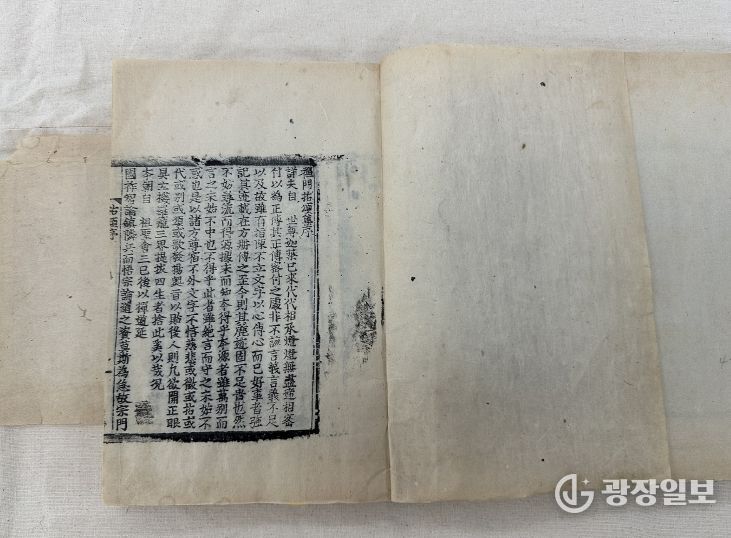 禪門拈頌集序
詳夫自 世尊迦葉已來代代相承燈燈無盡遞相密
付以為正傳其正傳密付之處非不該言義言義不足
以及故雖有指陳不立文字以心傳心而已好事者强
記其迹載在方冊傳之至今則其麁迹固不足貴也然
不妨尋流而得源據末而知本得乎本源者雖萬別而
言之未始不中也不得乎此者雖絶言而守之未始不
惑也是以諸方尊宿不外文字不悋慈悲或徵或拈或
代或別或頌或歌發揚奧旨以貽後人則凡欲開正眼
具玄機羅籠三界提拔四生者捨此奚以哉況
本朝自 祖聖會三已後以禪道延
國祚智論鎮隣兵而悟宗論道之資莫斯為急故宗門
拈頌序
광장일보